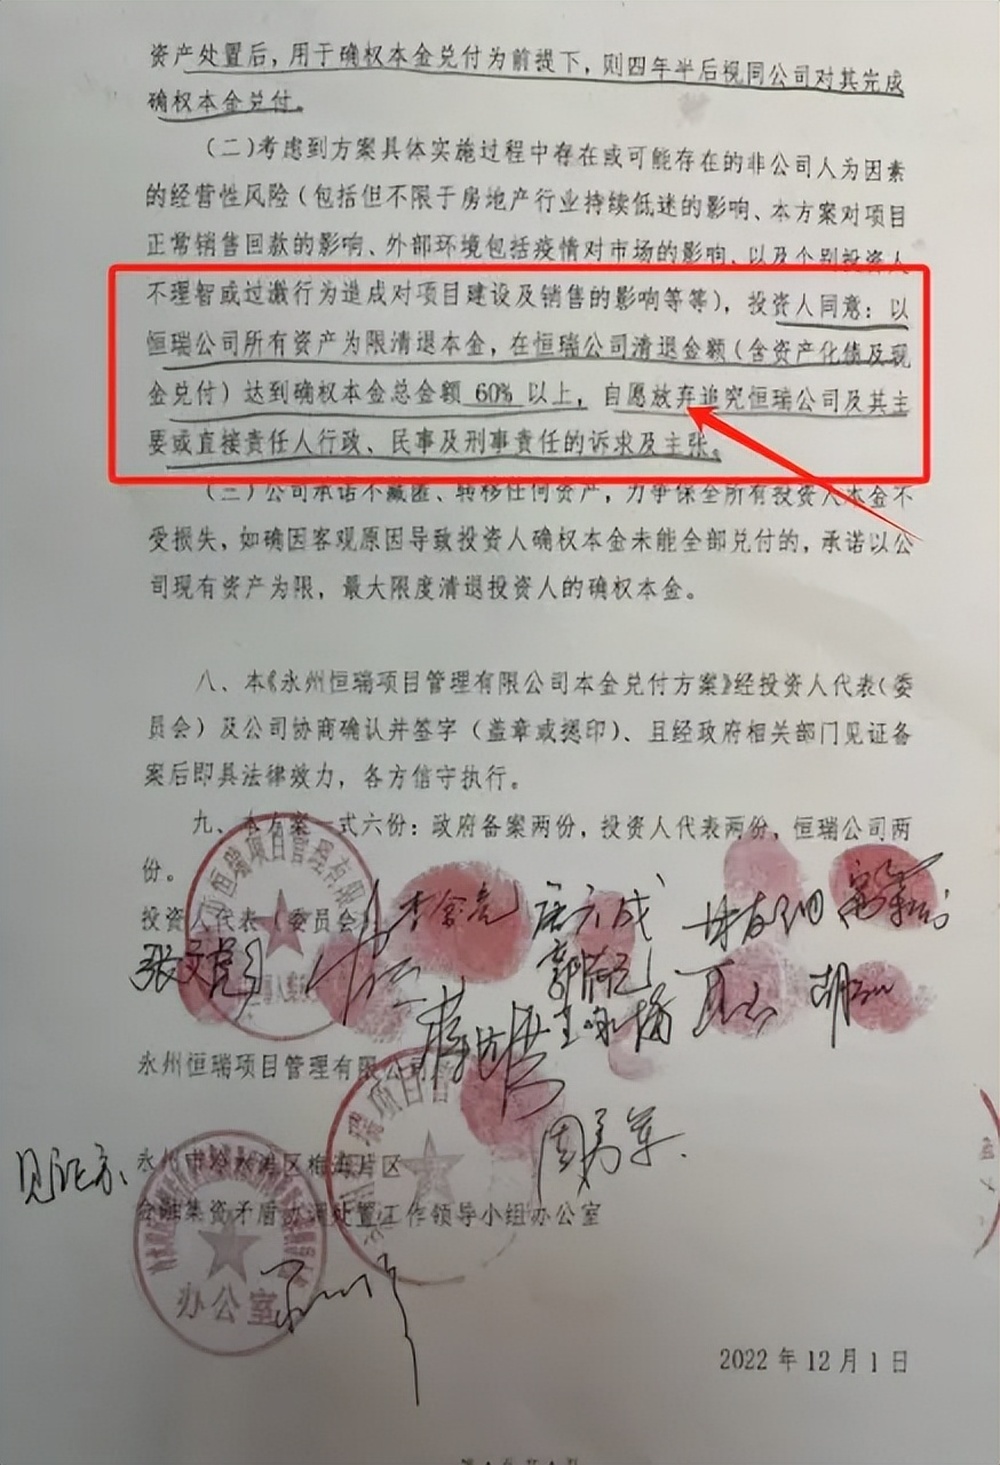 资产处置后，用于确权本金兑付为前提下，则四年半后视同公司对其完成
确权本金兑付。
（二）考虑到方案具体实施过程中存在或可能存在的非公司人为因素
的经营性风险（包括但不限于房地产行业持续低迷的影响、本方案对项目
正常销售回款的影响、外部环境包括疫情对市场的影响、以及个别投资人
不理智或过激行为造成对项目建设及销售的影响等等），投资人同意：以
恒瑞公司所有资产为限清退本金，在恒瑞公司清退金额（含资产化债及现
金兑付）达到确权本金总金额 60% 以上，自愿放弃追究恒瑞公司及其主
要或直接责任人行政、民事及刑事责任的诉求及主张。
（三）公司承诺不藏匿、转移任何资产，力争保全所有投资人本金不
受损失，如确因客观原因导致投资人确权本金未能全部兑付的，承诺以公
司现有资产为限，最大限度清退投资人的确权本金。
八、本《永州恒瑞项目管理有限公司本金兑付方案》经投资人代表（委
员会）及公司协商确认并签字（盖章或摁印）、且经政府相关部门见证备
案后即具法律效力，各方信守执行。
九、本方案一式六份：政府备案两份，投资人代表两份，恒瑞公司两
份。
恒瑞项目管理有限
投资人代表（委员会）
永州恒瑞项目管理有限公司
瑞项目管
见证方、永州市冷水滩区梅湾片区
金融集资矛盾协调处置工作领导小组办公室
办公室
2022 年 12 月 1 日